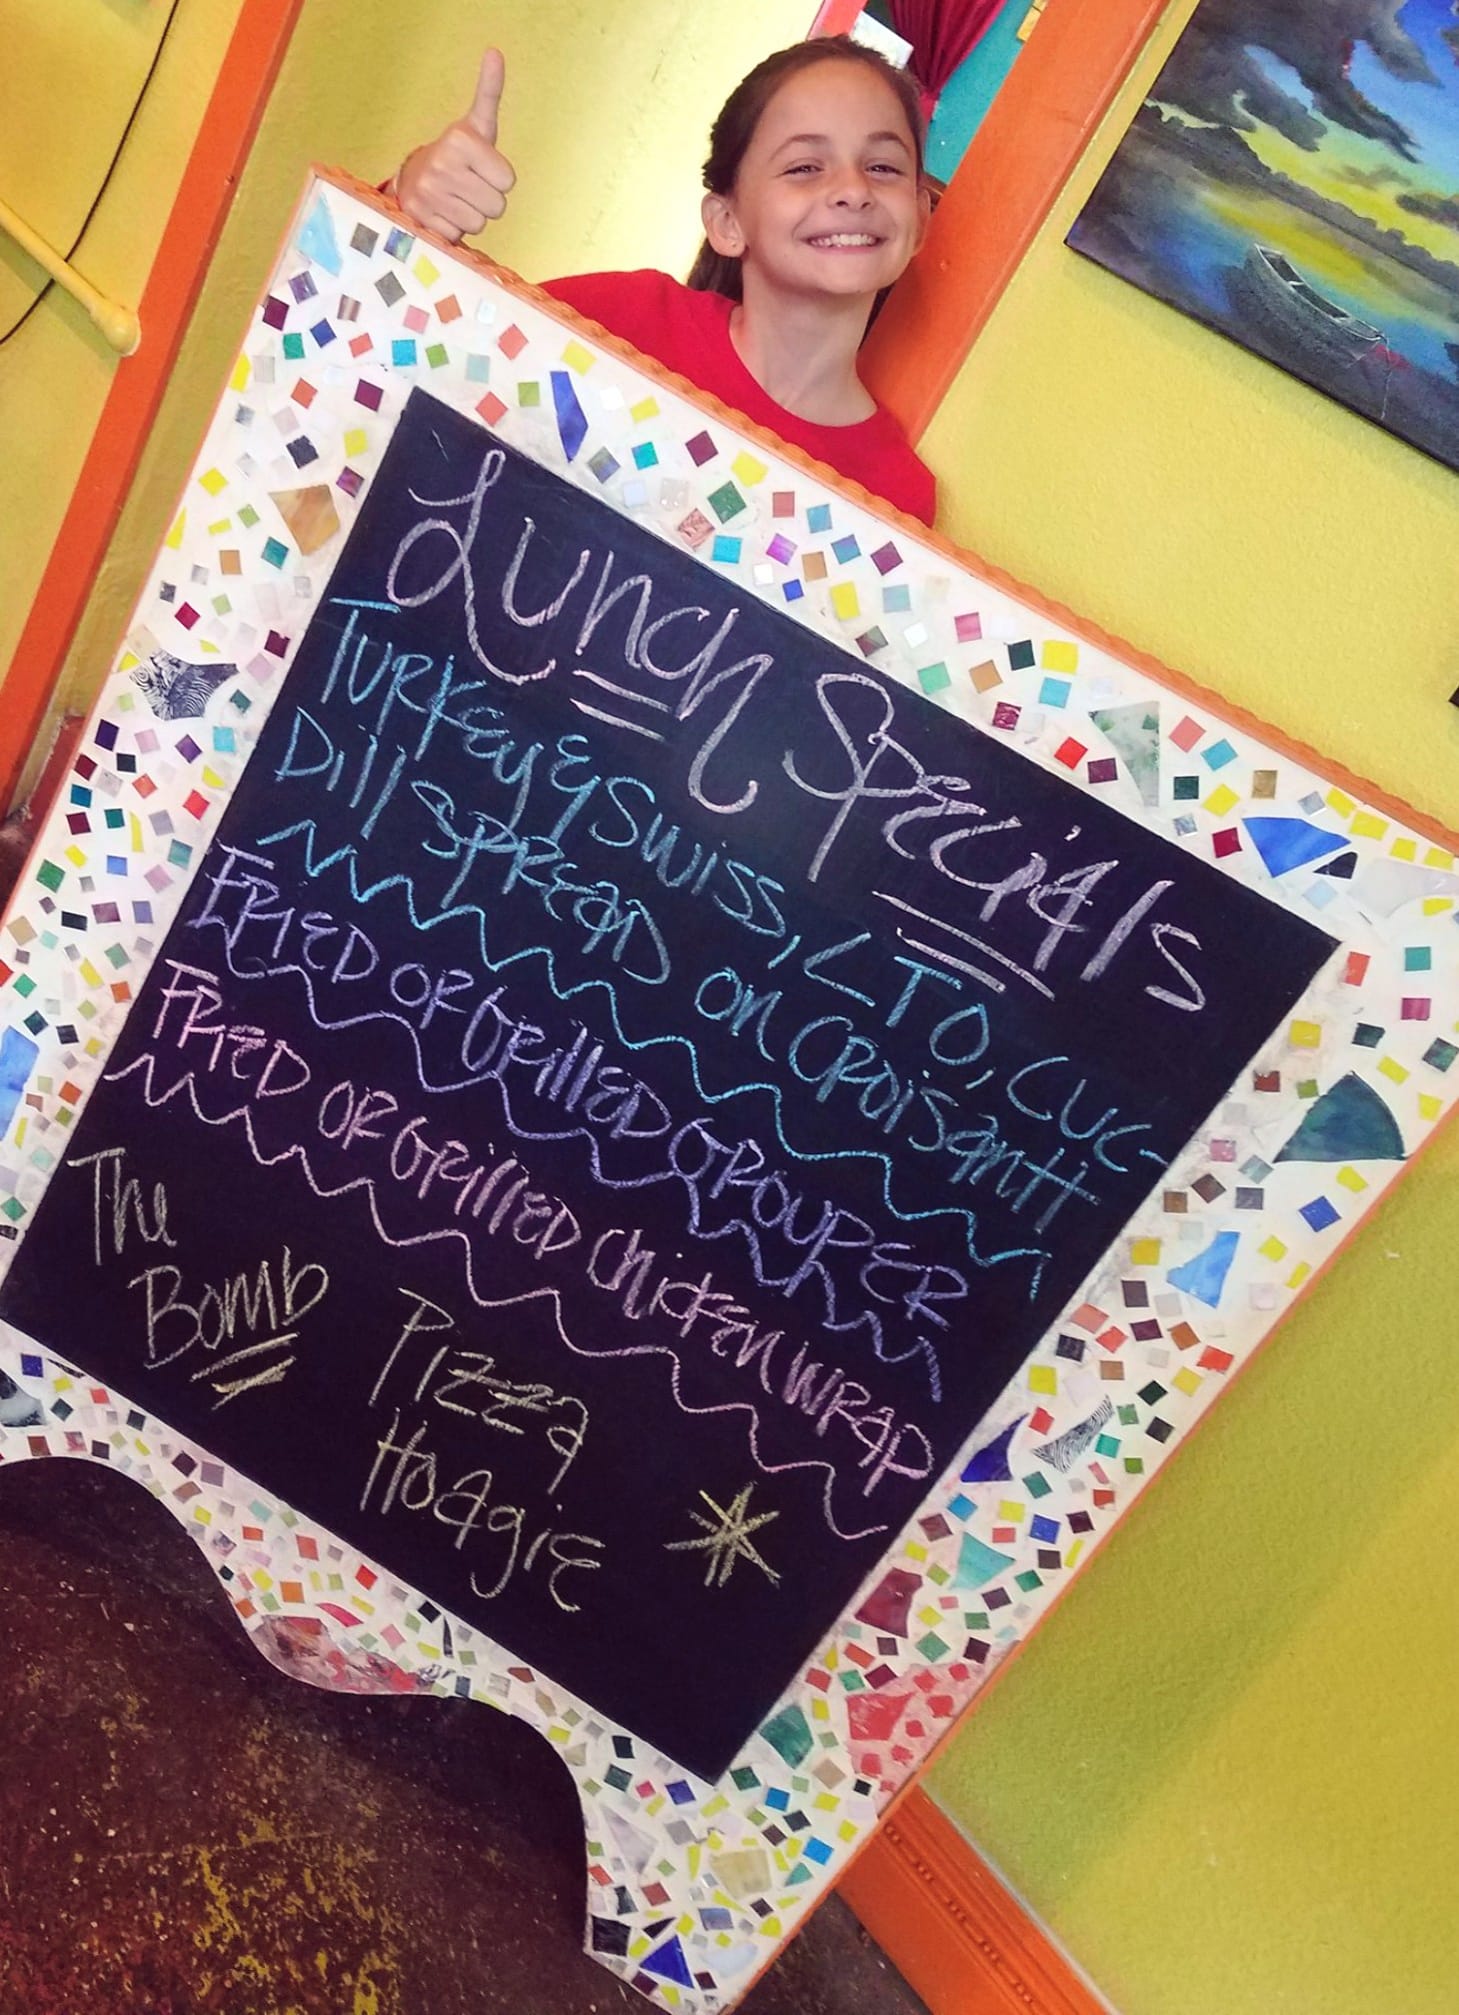 Lunch Specials
Turkey & Swiss, LTO, Cuc-
Dill Spread on Croisantt
Fried or Grilled Grouper
Fried or Grilled Chicken Wrap
The
Bomb
Pizza
Hoagie